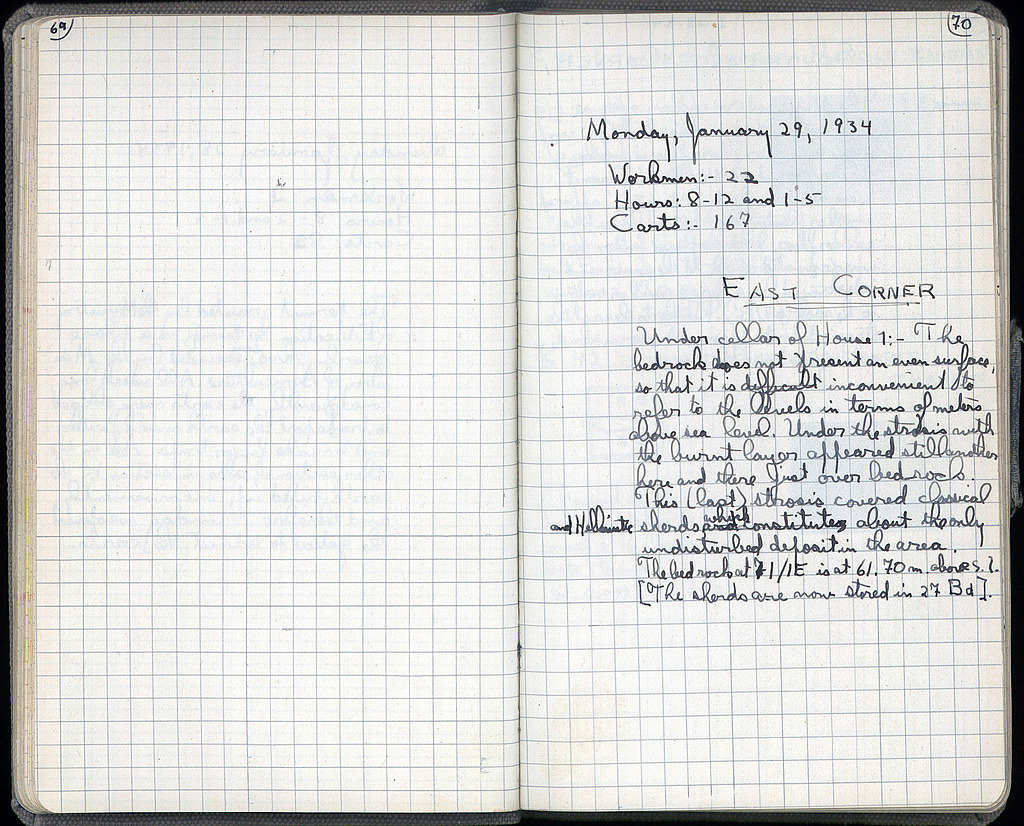 69
70
Monday, January 29, 1934
Workmen:- 22
Hours: 8-12 and 1-5
Carts:- 167
EAST CORNER
Under cellar of House 1:- The
bedrock does not present an even surface,
so that it is difficult inconvenient to
refer to the levels in terms of meters
above sea level. Under the strosis with
the burnt layer appeared still another
here and there just over bedrock.
This (last) strosis covered classical
and Hellenistic sherds which constitutes about the only
undisturbed deposit in the area.
The bedrock at 71/IE is at 61.70 m. above s.l.
[The sherds are now stored in 27 Bd].